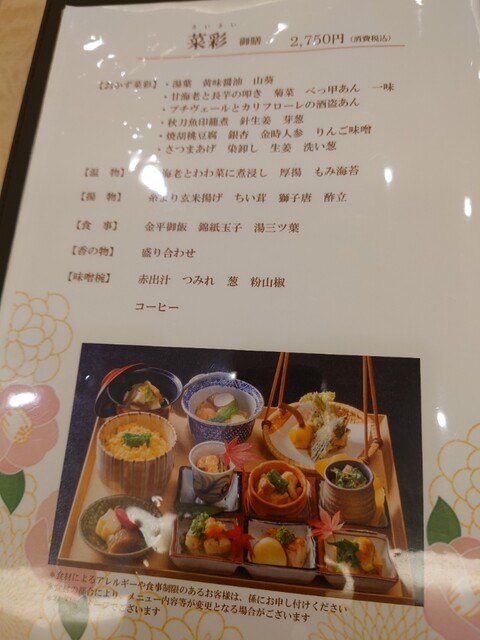 さいさい
菜彩 御膳 2,750円（消費税込）
【おかず菜彩】・湯葉 黄味醤油 山葵
・甘海老と長芋の叩き 菊菜 べっ甲あん 一味
・プチヴェールとカリフローレの酒盗あん
・秋刀魚印籠煮 針生姜 芽葱
・焼胡桃豆腐 銀杏 金時人参 りんご味噌
・さつまあげ 染卸し 生姜 洗い葱
【温 物】 海老とわわ菜に煮浸し 厚揚 もみ海苔
【揚 物】 糸より玄米揚げ ちい茸 獅子唐 酢立
【食 事】 金平御飯 錦紙玉子 湯三ツ葉
【香の物】 盛り合わせ
【味噌椀】 赤出汁 つみれ 葱 粉山椒
コーヒー
＊食材によるアレルギーや食事制限のあるお客様は、係にお申し付けください
＊食材の都合により、メニュー内容等が変更となる場合がございます
ージでございます